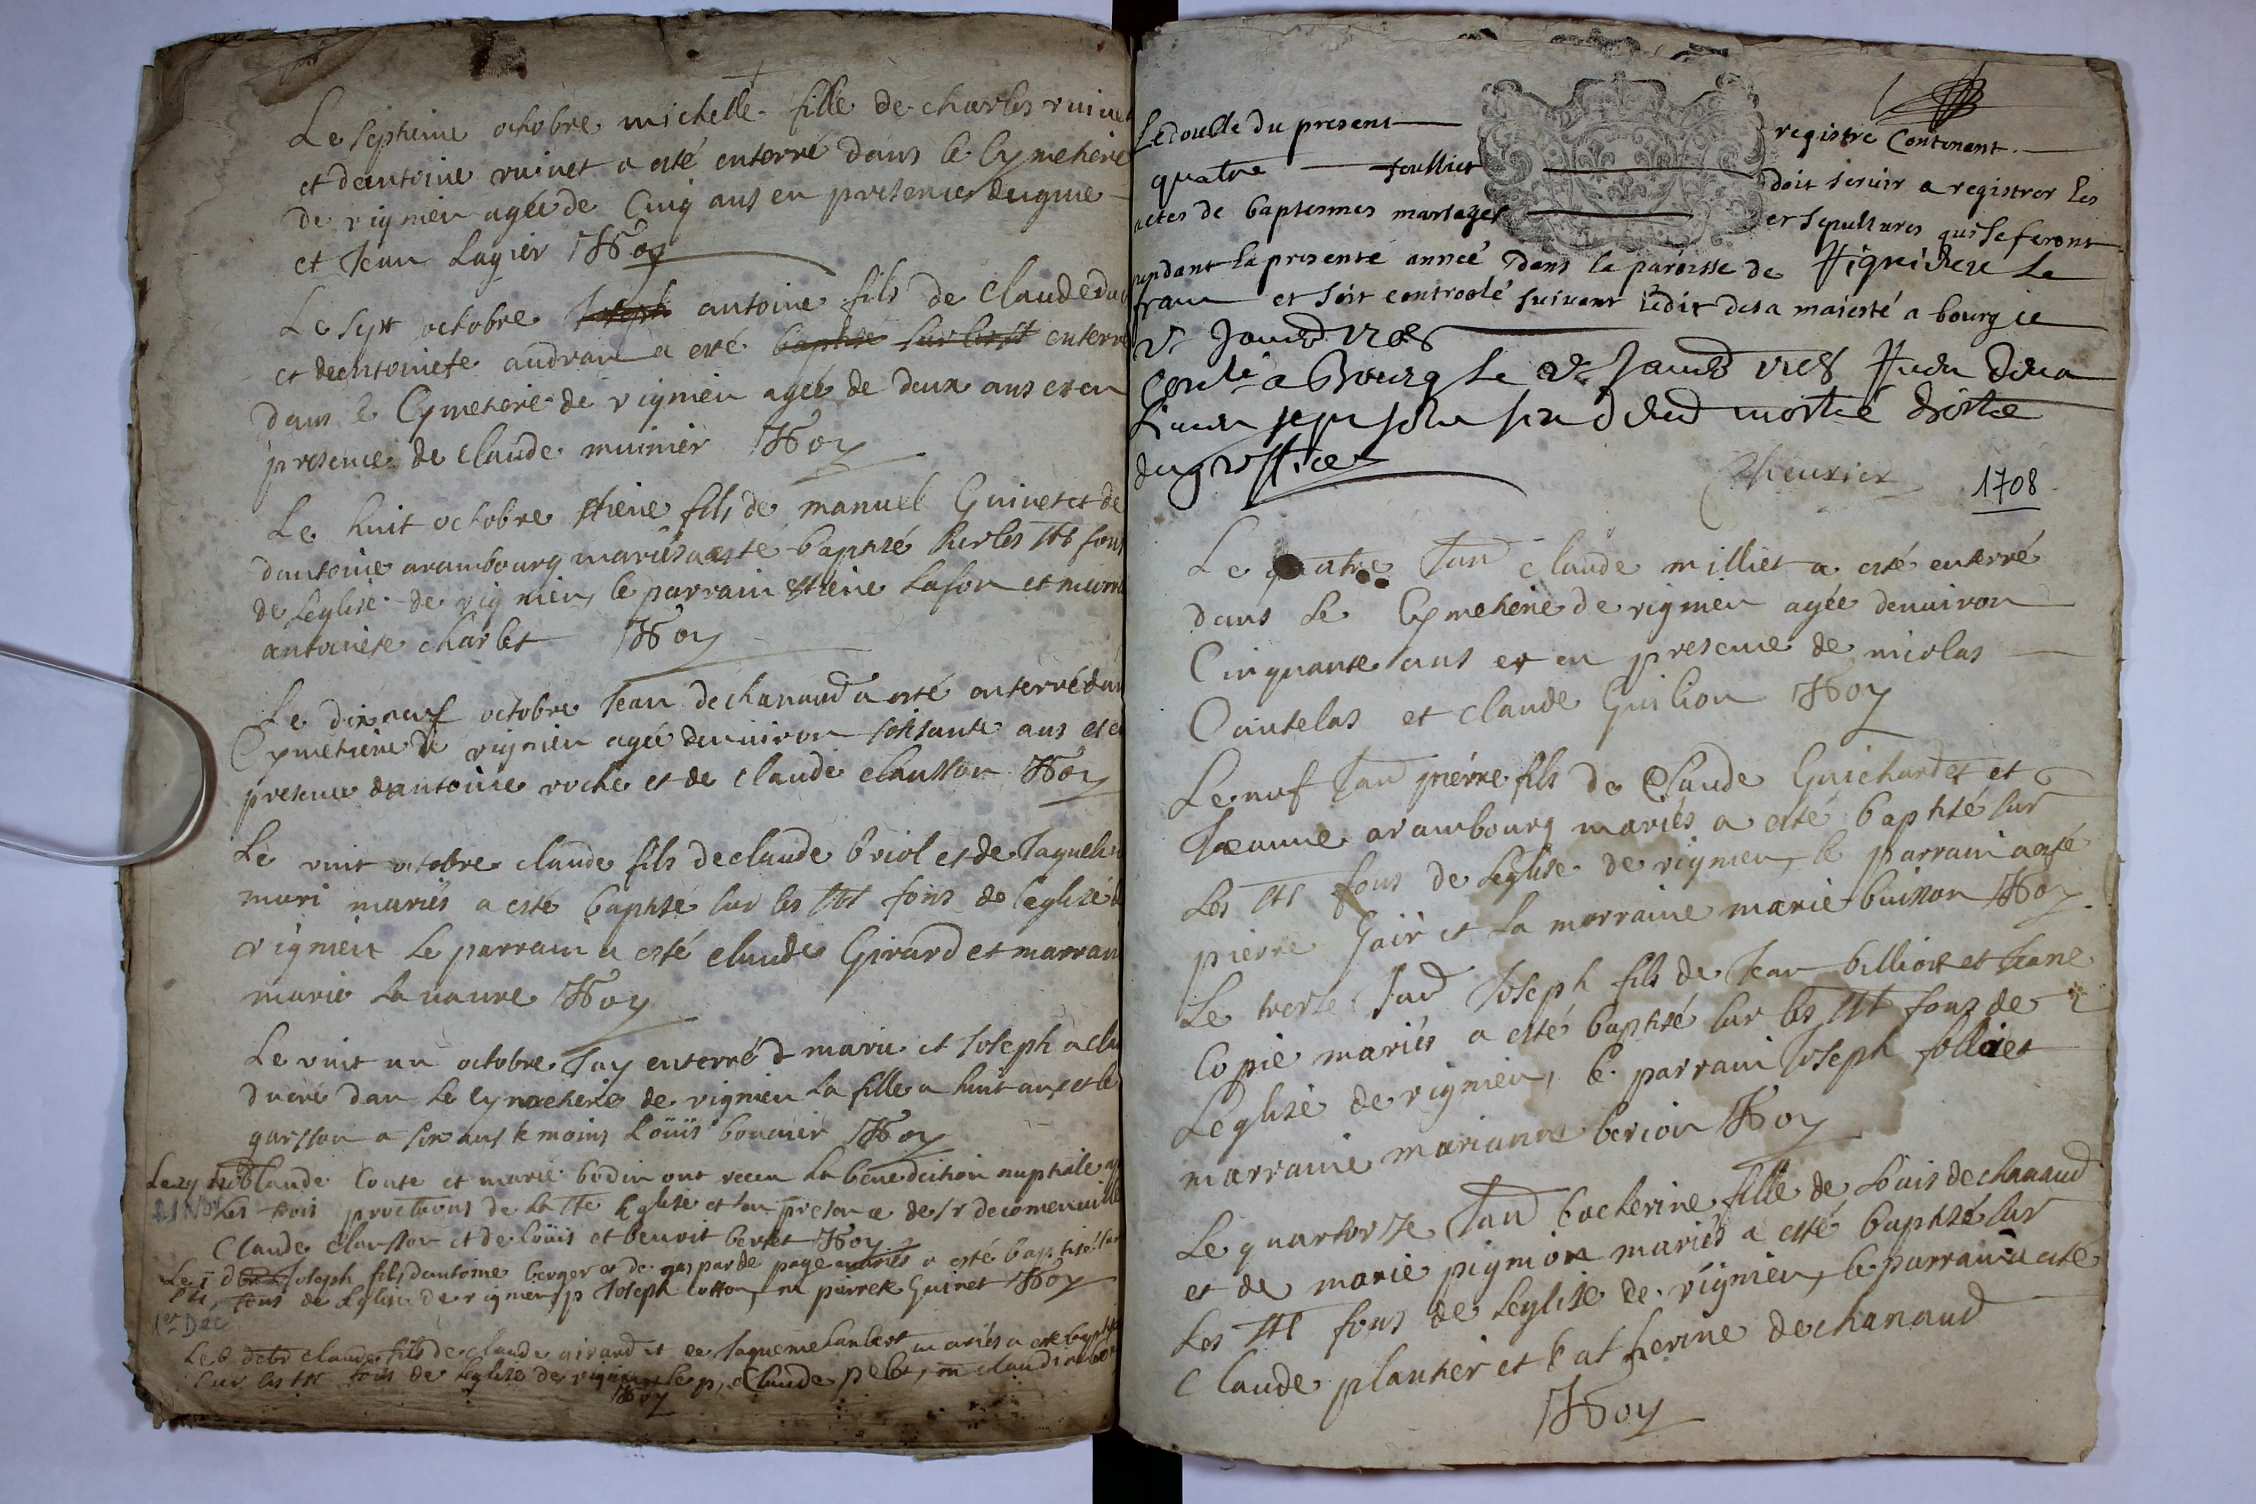 Le septieme octobre michelle fille de charles vuinet
et dantoine vuinet a esté enterré dans le Cymetiere
de vignieu agée de Cinq ans en presence
et Jean Lagier Roy
Le sept octobre Joseph antoine fils de claude
et dentoinete audran a esté baptisé sur les st enterré
dans le Cymetiere de vignieu agée de deux ans et en
presence de claude munier Roy
Le huit octobre Etiene fils de manuel Guinet et de
dantoine arambourg mariés a esté baptisé sur les sts fons
de leglise de vignieu, le parrain Etiene Lafon et
antoinete charlet Roy
Le dixneuf octobre Jean dechanaud a esté enterré dans
Cymetiere de vignieu agée denuiron soisante ans et en
presence dantoine roche et de claude clausson Roy
Le vint octobre claude fils de claude briol et de Jaqueline
muri mariés a esté baptisé sur les sts fons de leglise
vignieu Le parrain a esté claude Girard et marraine
marie Lanaure Roy
Le vint un octobre Jay enterré marie et Joseph
ducré dan Le Cymetiere de vignieu La fille a huit ans et le
garsson a six ans temoins Loüis bouuier Roy
Le 21 Claude Conte et marie bodin ont receu La benediction nuptiale
21 Nov Les trois de La Ste Eglise et en presence de Sr
Claude Clausson et de Loüis et benoit bertet Roy
Le 1 Joseph fils dantoine berger et de gasparde page mariés a esté baptisé
fons de Leglise de vignieu p Joseph Cotton, m pierrete Guinet Roy
1er Dec
Le 6 claude fils de claude girard et de Jaqueme Lanbert mariés a esté baptisé
sur les sts fons de leglise de vignieu Le p, Claude pelet, m claudine
Roy
Le double du present registre Contenant
quatre feullies doit seruir a registrer les
actes de baptesmes mariages et sepultures qui se feront
pendant la presente année dans la paroisse de Le
franc et soit controolé suiuant lédit de sa maiesté a bourg ce
2e Janu 1708
Conlé a Bourg Le 2e Janu 1708
moitié droitz
Meurier
1708
Le quatre Jan claude milliet a esté enterré
dans Le Cymetiere de vignieu agée denuiron
Cinquante ans et en presence de nicolas
Cantelas et claude Guilion Roy
Le neuf Jan pierre fils de Claude Guichardet et
Jeanne arambourg mariés a esté baptisé sur
Les sts fons de Leglise de vignieu, le parrain a esté
pierre Jair et La marraine marie buisson Roy
Le treise Jan Joseph fils de Jean billiot et Jeane
Copie mariés a esté baptisé sur les sts fons de
Leglise de vignieu, le parrain Joseph folliet
marraine marianne berion Roy
Le quartorse Jan Catherine fille de Loüis dechanaud
et de marie pignion mariés a esté baptisé sur
Les sts fons de Leglise de vignieu, le parrain a esté
Claude plantier et Catherine dechanaud
Roy